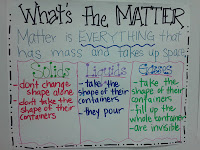 What's the MATTER
Matter is EVERYTHING that
has mass and takes up space
Solids
dont change
shape alone
dont take the
shape of their
containers
Liquids
- take the
shape of their
containers
- they pour
Gases
- take the
shape of their
containers
- fill up the
whole container
- are invisible